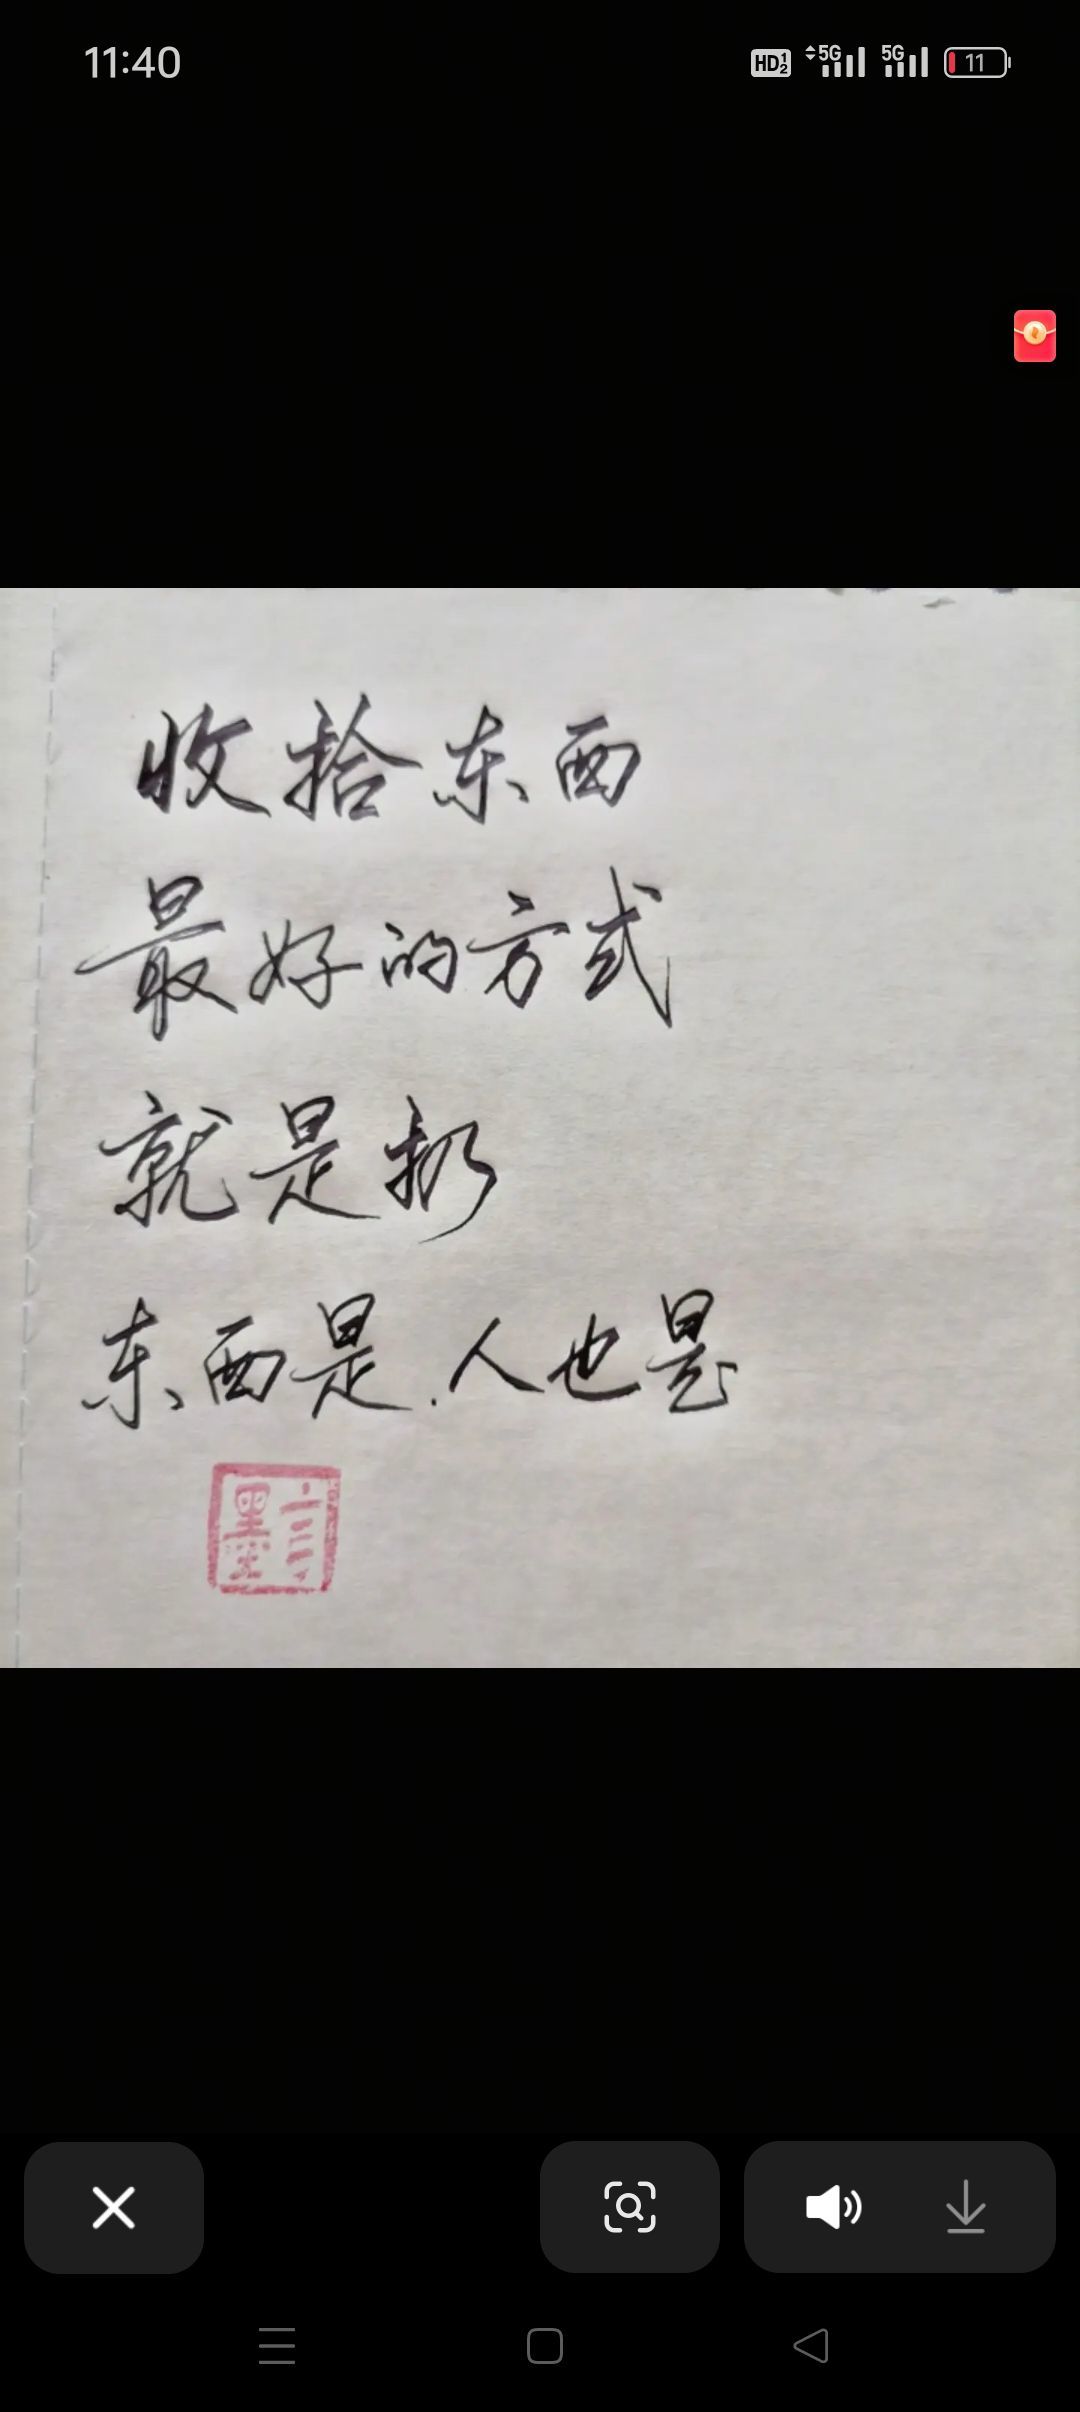 11:40
HD 1 2 5G 5G 11
收拾东西
最好的方式
就是扔
东西是.人也是
言墨